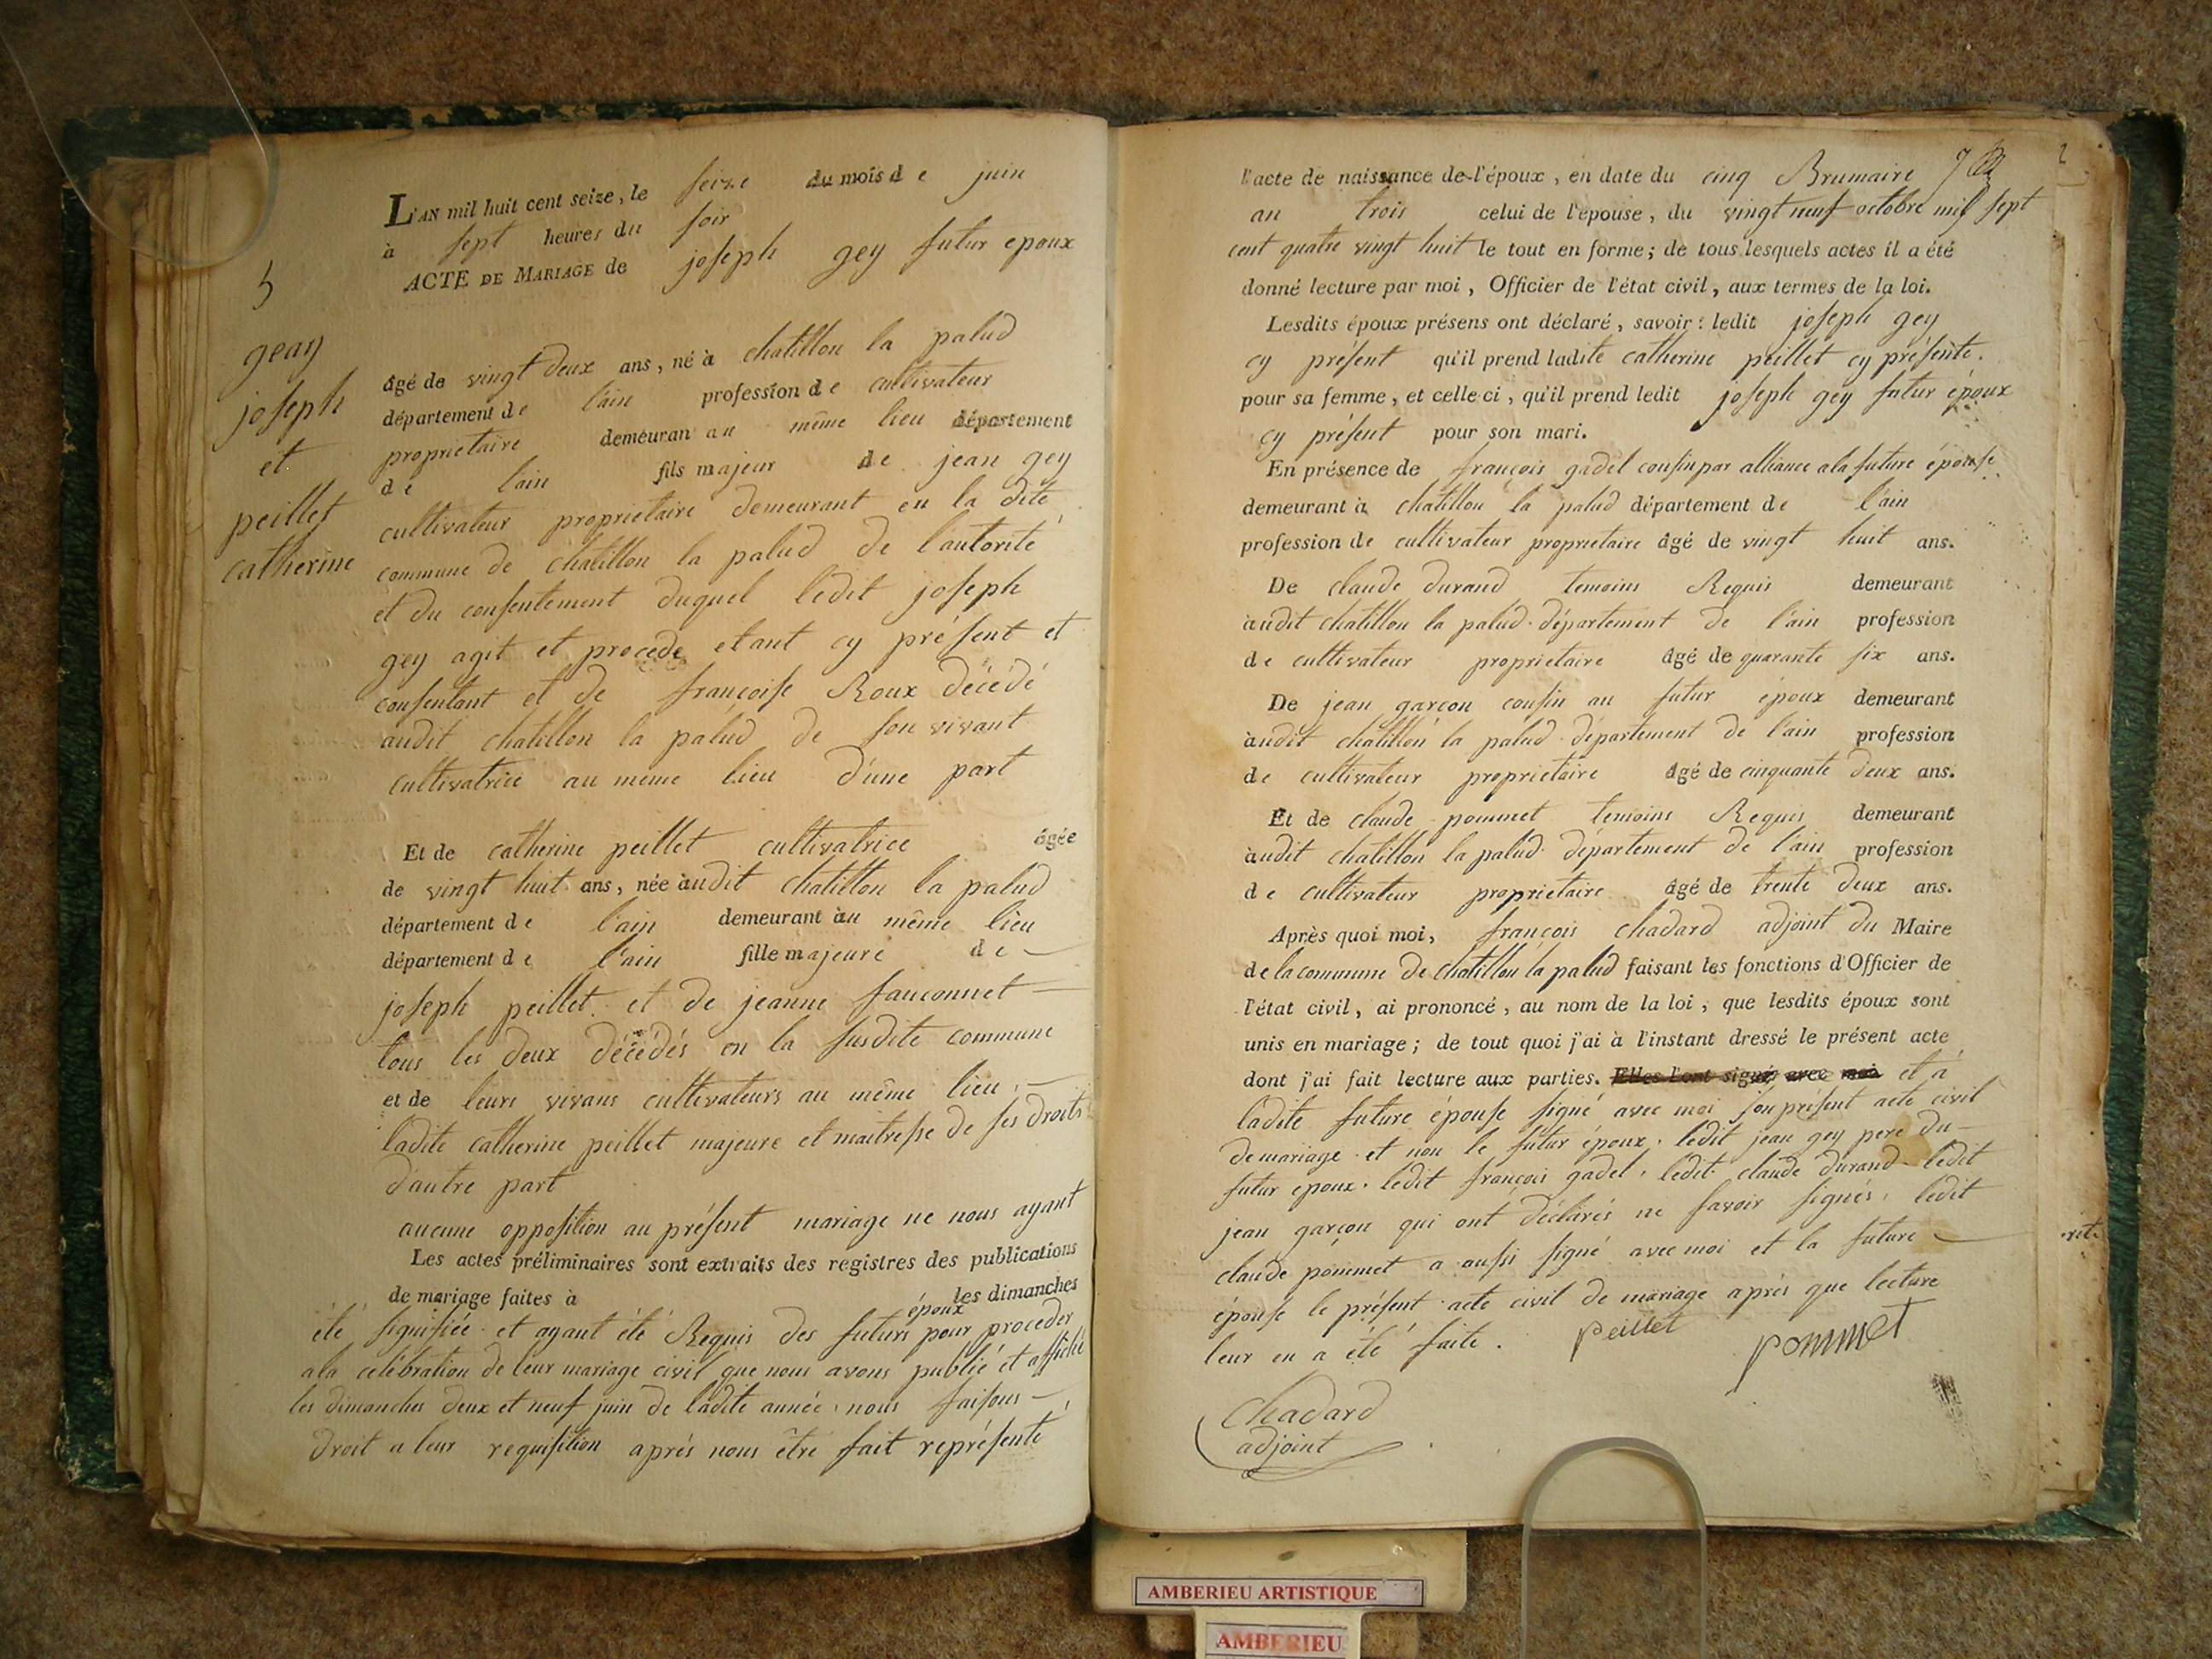 L'AN mil huit cent seize, le seize du mois de juin
à sept heures du soir
ACTE DE MARIAGE de joseph gey futur epoux
5
geay
joseph
et
peillet
catherine
âgé de vingt deux ans, né à chatillon la palud
département de l'ain profession de cultivateur
proprietaire demeuran au même lieu département
de l'ain fils majeur de jean gey
cultivateur proprietaire demeurant en la dite
commune de chatillon la palud de l'autorité
et du consentement duquel ledit joseph
gey agit et procede etant cy présent et
consentant et de françoise Roux décédé
audit chatillon la palud de son vivant
cultivatrice au meme lieu d'une part
Et de catherine peillet cultivatrice âgée
de vingt huit ans, née audit chatillon la palud
département de l'ain demeurant au même lieu
département de l'ain fille majeure de
joseph peillet et de jeanne fauconnet
tous les deux décédés en la susdite commune
et de leurs vivans cultivateurs au même lieu.
ladite catherine peillet majeure et maitresse de ses droits
d'autre part
aucune opposition au présent mariage ne nous ayant
Les actes préliminaires sont extraits des registres des publications
de mariage faites à les dimanches
été signifiée et ayant été Requis des futurs époux pour proceder
a la celébration de leur mariage civil que nous avons publié et affiché
les dimanches deux et neuf juin de ladite année, nous faisons
droit a leur requisition aprés nous être fait représenté
2
l'acte de naissance de l'époux, en date du cinq Brumaire
an trois celui de l'epouse, du vingt neuf octobre mil sept
cent quatre vingt huit le tout en forme; de tous lesquels actes il a été
donné lecture par moi, Officier de l'état civil, aux termes de la loi.
Lesdits époux présens ont déclaré, savoir: ledit joseph gey
cy présent qu'il prend ladite catherine peillet cy présente.
pour sa femme, et celle-ci, qu'il prend ledit joseph gey futur époux
cy présent pour son mari.
En présence de françois gadel cousin par alliance a la future épouse
demeurant à chatillon la palud département de l'ain
profession de cultivateur proprietaire âgé de vingt huit ans.
De claude durand temoins Requis demeurant
audit chatillon la palud département de l'ain profession
de cultivateur proprietaire âgé de quarante six ans.
De jean garçon cousin au futur époux demeurant
audit chatillon la palud département de l'ain profession
de cultivateur proprietaire âgé de cinquante deux ans.
Et de claude pommet temoins Requis demeurant
audit chatillon la palud département de l'ain profession
de cultivateur proprietaire âgé de trente deux ans.
Après quoi moi, françois chadard adjoint du Maire
de la commune de chatillon la palud faisant les fonctions d'Officier de
l'état civil, ai prononcé, au nom de la loi, que lesdits époux sont
unis en mariage; de tout quoi j'ai à l'instant dressé le présent acte
dont j'ai fait lecture aux parties. Elles l'ont signé avec moi et a
ladite future épouse signé avec moi son présent acte civil
de mariage et non le futur époux. ledit jean gey pere du
futur epoux. ledit françois gadel, ledit claude durand ledit
jean garçon qui ont déclarés ne savoir signés, ledit
claude pommet a aussi signé avec moi et la future
épouse le présent acte civil de mariage aprés que lecture
leur en a été faite. peillet pommet
Chadard
adjoint
AMBERIEU ARTISTIQUE
AMBERIEU